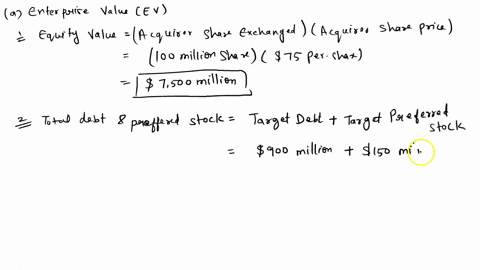 (a) Enterprise Value (EV)
1 Equity Value = (Acquirer share Exchanged) (Acquirer share price)
= (100 million share) ($75 per. share)
= $7,500 million
2 Total debt & preffered stock = Target Debt + Target Preferred stock
= $900 million + $150 mi